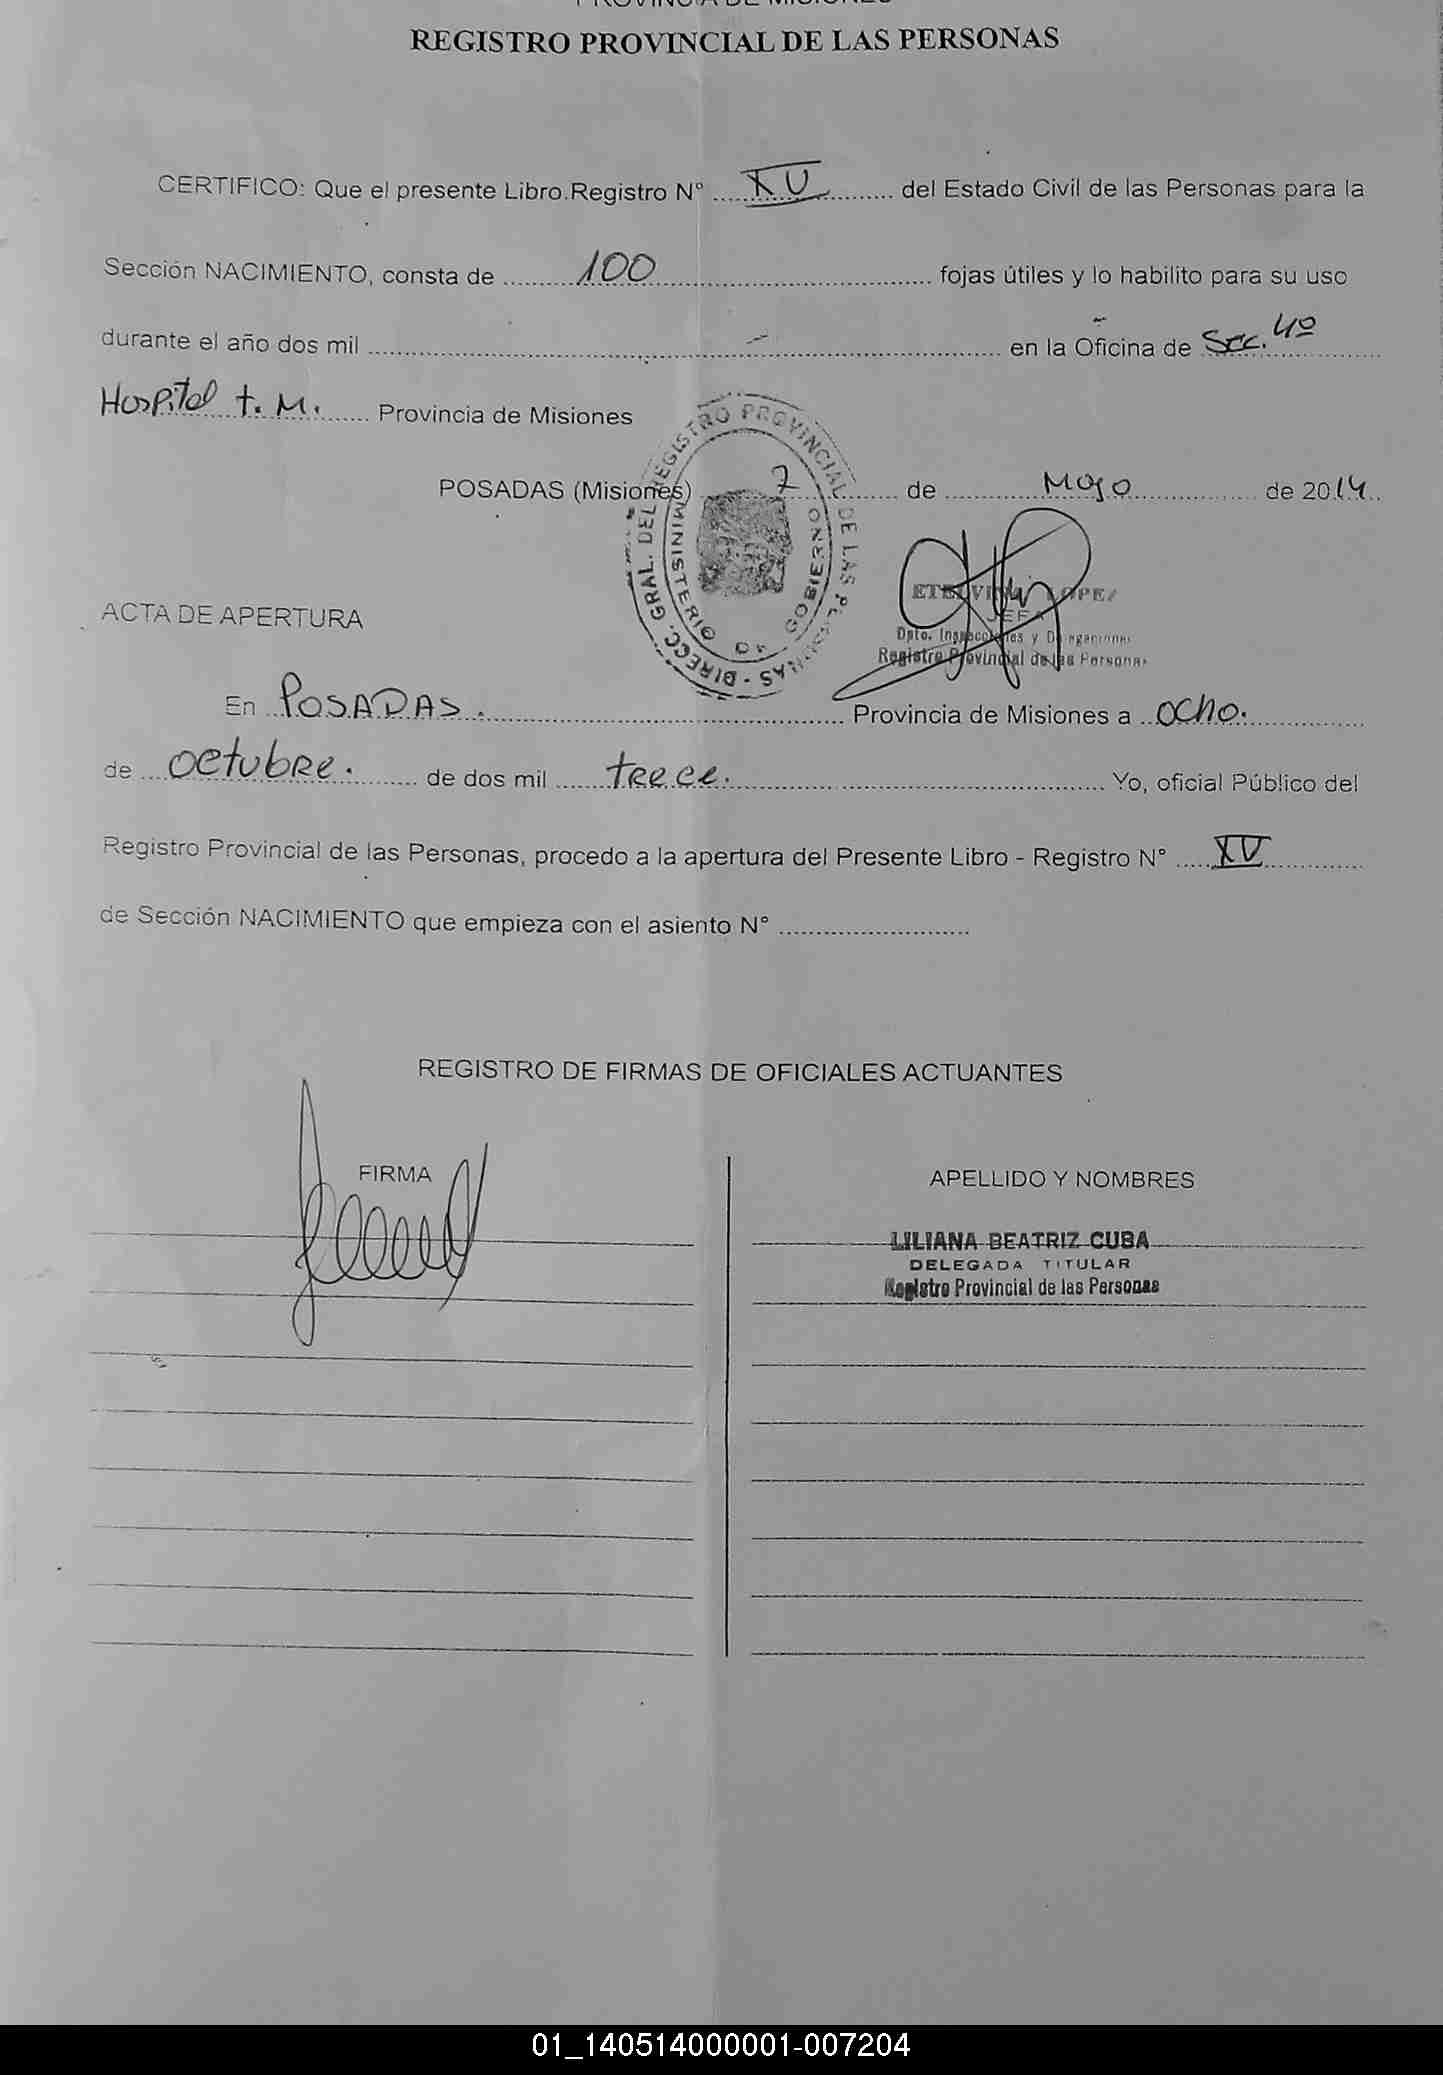 PROVINCIA DE MISIONES
REGISTRO PROVINCIAL DE LAS PERSONAS
CERTIFICO: Que el presente Libro.Registro N° XV del Estado Civil de las Personas para la
Sección NACIMIENTO, consta de 100 fojas útiles y lo habilito para su uso
durante el año dos mil en la Oficina de Sec. 4º
Hospital t. M. Provincia de Misiones
POSADAS (Misiones) 7 de Mayo de 2014
DIRECC. GRAL. DEL REGISTRO PROVINCIAL DE LAS PERSONAS
MINISTERIO DE GOBIERNO
LOPEZ
JEFA
Dpto. Inspecciones y Delegaciones
Registro Provincial de las Personas
ACTA DE APERTURA
En POSADAS. Provincia de Misiones a ocho.
de octubre. de dos mil trece. Yo, oficial Público del
Registro Provincial de las Personas, procedo a la apertura del Presente Libro - Registro N° XV
de Sección NACIMIENTO que empieza con el asiento N°
REGISTRO DE FIRMAS DE OFICIALES ACTUANTES
FIRMA
APELLIDO Y NOMBRES
LILIANA BEATRIZ CUBA
DELEGADA TITULAR
Registro Provincial de las Personas
01_140514000001-007204